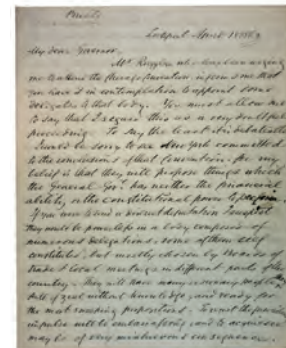 Private
Lockport April 18 1863
My dear Governor,
Mr Ruggles who has been urging
me to attend the Convention, informs me that
you have it in contemplation to appoint some
delegates to that body. You must allow me
to say that I regard this as a very doubtful
proceeding. To say the least it is debatable
I would be sorry to see New York committed
to the conclusions of that Convention: for my
belief is that they will propose things which
the General Govt. has neither the financial
ability, or the constitutional power to perform.
If you were to send a prudent deputation
they would be powerless in a body composed of
numerous delegations, some of them self
constituted, but mostly chosen by Boards of
trade & local meetings in different parts of the
country. They will have many
of zeal without knowledge, and ready for
the most propositions. To resist the
impulse will be embarrassing; and to acquiesce
may be of very mischievous consequence.